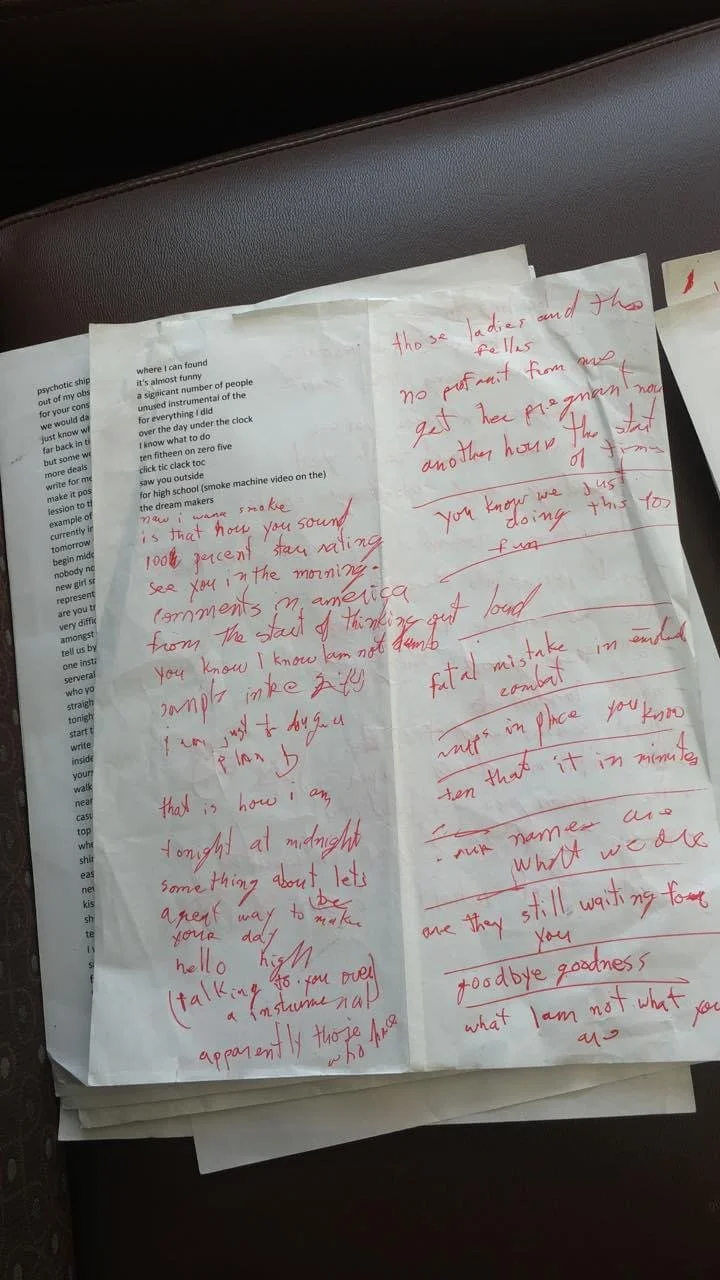 psychotic ship
out of my obs
for your cons
we would da
just know wh
far back in ti
but some we
more deals
write for me
make it pos
lession to th
example of
currently in
tomorrow
begin midd
nobody no
new girl sn
represent
are you tr
very diffic
amongst
tell us by
one insta
serveral
who yo
straigh
tonigh
start t
write
inside
yours
walk
near
casu
top
whe
shir
eas
nev
kis
sh
te
I w
where I can found
it's almost funny
a signicant number of people
unused instrumental of the
for everything I did
over the day under the clock
I know what to do
ten fitheen on zero five
click tic clack toc
saw you outside
for high school (smoke machine video on the)
the dream makers
now i wana smoke
is that how you sound
100% percent star rating
see you in the morning.
comments in america
from the start of thinking out loud
you know I know Iam not dumb
just
plan b
that is how i am
tonight at midnight
something about lets
a great way to be make
your day
hello high
(talking to you over
a instrumenal)
apparently those
who
those ladies and
fellas
no from me
get her pregnant now
another hour the start
of times
you know we just
doing this for
fun
fatal mistake in
combat
in place you know
ten that it in minutes
our names are
what we are
are they still waiting for
you
goodbye goodness
what Iam not what you
are